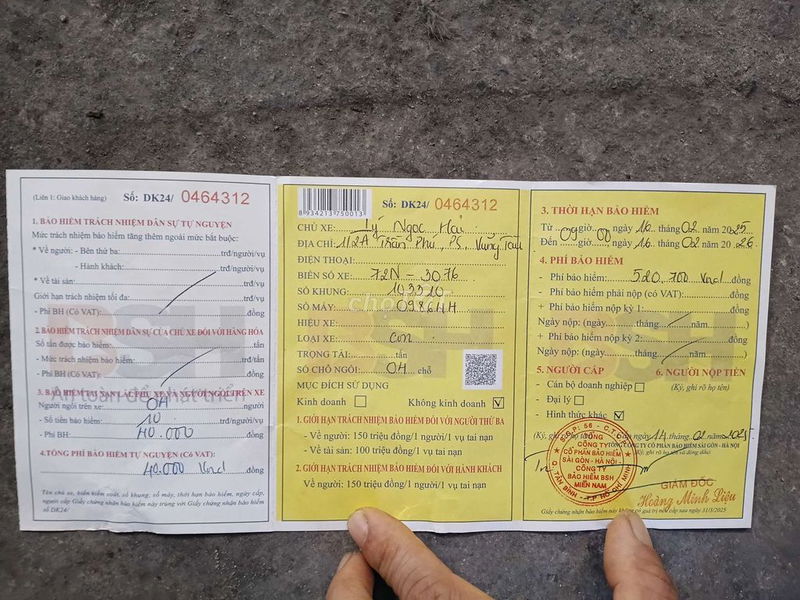 (Liên 1: Giao khách hàng) Số: DK24/ 0464312
1. BẢO HIỂM TRÁCH NHIỆM DÂN SỰ TỰ NGUYỆN
Mức trách nhiệm bảo hiểm tăng thêm ngoài mức bắt buộc:
* Về người: - Bên thứ ba:.....trđ/người/vụ
- Hành khách:.....trđ/người/vụ
* Về tài sản:.....trđ/vụ
Giới hạn trách nhiệm tối đa:.....trđ/vụ
- Phí BH (Có VAT):.....đồng
2. BẢO HIỂM TRÁCH NHIỆM DÂN SỰ CỦA CHỦ XE ĐỐI VỚI HÀNG HÓA
Số tấn được bảo hiểm:.....tấn
- Mức trách nhiệm bảo hiểm:.....trđ/tấn
- Phí BH (Có VAT):.....đồng
3. BẢO HIỂM TAI NẠN LÁI, PHỤ XE VÀ NGƯỜI NGỒI TRÊN XE
An toàn để phát triển
Người ngồi trên xe: 04 người
- Số tiền bảo hiểm: 10 trđ/người/vụ
- Phí BH: 40.000 đồng
4. TỔNG PHÍ BẢO HIỂM TỰ NGUYỆN (Có VAT):
40.000 vnd đồng
Tên chủ xe, biển kiểm soát, số khung, số máy, thời hạn bảo hiểm, ngày cấp,
người cấp Giấy chứng nhận bảo hiểm này trùng với Giấy chứng nhận bảo hiểm
số DK24/
8 934213 750013
Số: DK24/ 0464312
CHỦ XE: Lý Ngọc Hải
ĐỊA CHỈ: 112A Trần Phú, P5, Vũng Tàu
ĐIỆN THOẠI:
BIỂN SỐ XE: 72N - 3076
SỐ KHUNG: 103320
SỐ MÁY: 09864H
HIỆU XE:
LOẠI XE: con
TRỌNG TẢI:.....tấn
SỐ CHỖ NGỒI: 04 chỗ
MỤC ĐÍCH SỬ DỤNG
Kinh doanh Không kinh doanh
1. GIỚI HẠN TRÁCH NHIỆM BẢO HIỂM ĐỐI VỚI NGƯỜI THỨ BA
- Về người: 150 triệu đồng/1 người/1 vụ tai nạn
- Về tài sản: 100 triệu đồng/1 vụ tai nạn
2. GIỚI HẠN TRÁCH NHIỆM BẢO HIỂM ĐỐI VỚI HÀNH KHÁCH
Về người: 150 triệu đồng/1 người/1 vụ tai nạn
3. THỜI HẠN BẢO HIỂM
Từ.....giờ.....ngày 16 tháng 02 năm 2025
Đến 09 giờ 00 ngày 16 tháng 02 năm 2026
4. PHÍ BẢO HIỂM
- Phí bảo hiểm: 520,700 vnd đồng
- Phí bảo hiểm phải nộp (có VAT):.....đồng
+ Phí bảo hiểm nộp kỳ 1:.....đồng
Ngày nộp: (ngày.....tháng.....năm.....)
+ Phí bảo hiểm nộp kỳ 2:.....đồng
Ngày nộp: (ngày.....tháng.....năm.....)
5. NGƯỜI CẤP 6. NGƯỜI NỘP TIỀN
- Cán bộ doanh nghiệp (Ký, ghi rõ họ tên)
- Đại lý
- Hình thức khác
Cấp ngày 14 tháng 02 năm 2025
TỔNG CÔNG TY CỔ PHẦN BẢO HIỂM SÀI GÒN - HÀ NỘI
TỔNG
CÔNG TY
CỔ PHẦN BẢO HIỂM
SÀI GÒN - HÀ NỘI
CÔNG TY
BẢO HIỂM BSH
MIỀN NAM
Q. TÂN BÌNH - T.P HỒ CHÍ MINH
GIÁM ĐỐC
Hoàng Minh Diệu
Giấy chứng nhận bảo hiểm này không có giá trị nếu cấp sau ngày 31/3/2025